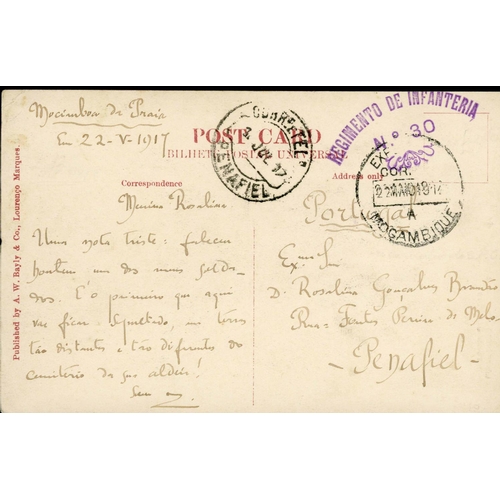 Mocimboa da Praia
Em 22-V-1917
POST CARD
BILHETE POSTAL UNIVERSAL
Correspondence
Address only
CORREIO E TEL
4 JUL 17
PENAFIEL
REGIMENTO DE INFANTERIA
Nº 30
EXP.
COR.
22 MAIO 1917
A
MOÇAMBIQUE
Published by A. W. Bayly & Co., Lourenço Marques.
Rosalina
Uma nota triste: faleceu
hontem um dos meus solda-
dos. E'o primeiro que aqui
vae ficar sepultado, em terras
tão distantes e tão diferentes do
cemiterio da sua aldeia!
Seu
Portugal
Exma. Snra.
D. Rosalina Gonçalves Brandão
Rua Fontes Pereira de Melo
-Penafiel-